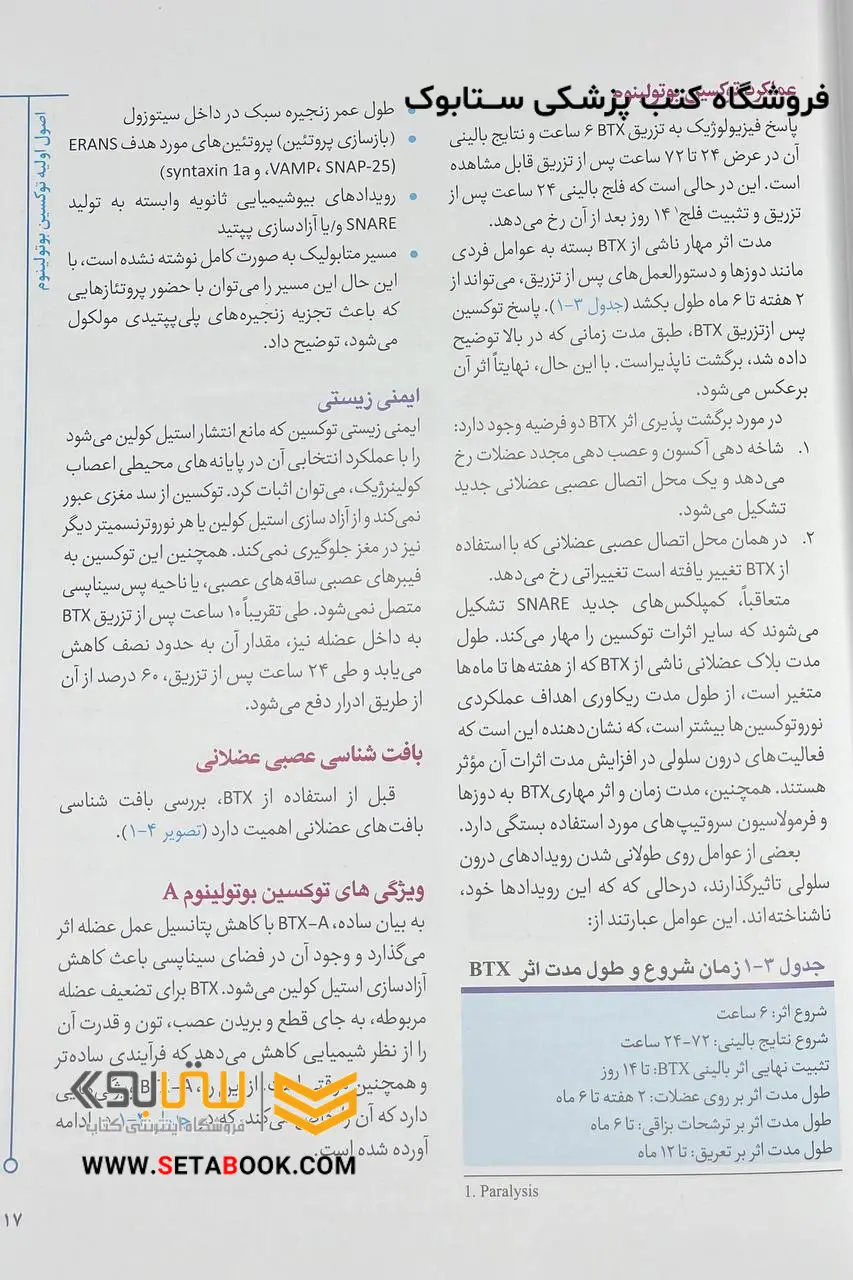 فروشگاه کتب پزشکی ستابوک
عملکرد توکسین بوتولینوم
پاسخ فیزیولوژیک به تزریق BTX ۶ ساعت و نتایج بالینی
آن در عرض ۲۴ تا ۷۲ ساعت پس از تزریق قابل مشاهده
است. این در حالی است که فلج بالینی ۲۴ ساعت پس از
تزریق و تثبیت فلج۱ ۱۴ روز بعد از آن رخ می‌دهد.
مدت اثر مهار ناشی از BTX بسته به عوامل فردی
مانند دوزها و دستورالعمل‌های پس از تزریق، می‌تواند از
۲ هفته تا ۶ ماه طول بکشد (جدول ۳-۱). پاسخ توکسین
پس ازتزریق BTX، طبق مدت زمانی که در بالا توضیح
داده شد، برگشت ناپذیراست. با این حال، نهایتاً اثر آن
برعکس می‌شود.
در مورد برگشت پذیری اثر BTX دو فرضیه وجود دارد:
۱. شاخه دهی آکسون و عصب دهی مجدد عضلات رخ
می‌دهد و یک محل اتصال عصبی عضلانی جدید
تشکیل می‌شود.
۲. در همان محل اتصال عصبی عضلانی که با استفاده
از BTX تغییر یافته است تغییراتی رخ می‌دهد.
متعاقباً، کمپلکس‌های جدید SNARE تشکیل
می‌شوند که سایر اثرات توکسین را مهار می‌کند. طول
مدت بلاک عضلانی ناشی از BTX که از هفته‌ها تا ماه‌ها
متغیر است، از طول مدت ریکاوری اهداف عملکردی
نوروتوکسین‌ها بیشتر است، که نشان‌دهنده این است که
فعالیت‌های درون سلولی در افزایش مدت اثرات آن مؤثر
هستند. همچنین، مدت زمان و اثر مهاریBTX به دوزها
و فرمولاسیون سروتیپ‌های مورد استفاده بستگی دارد.
بعضی از عوامل روی طولانی شدن رویدادهای درون
سلولی تاثیرگذارند، درحالی که که این رویدادها خود،
ناشناخته‌اند. این عوامل عبارتند از:
جدول ۳-۱ زمان شروع و طول مدت اثر BTX
شروع اثر: ۶ ساعت
شروع نتایج بالینی: ۷۲-۲۴ ساعت
تثبیت نهایی اثر بالینی BTX: تا ۱۴ روز
طول مدت اثر بر روی عضلات: ۲ هفته تا ۶ ماه
طول مدت اثر بر ترشحات بزاقی: تا ۶ ماه
طول مدت اثر بر تعریق: تا ۱۲ ماه
1. Paralysis
• طول عمر زنجیره سبک در داخل سیتوزول
• (بازسازی پروتئین) پروتئین‌های مورد هدف ERANS
(VAMP، SNAP-25، و syntaxin 1a)
• رویدادهای بیوشیمیایی ثانویه وابسته به تولید
SNARE و/یا آزادسازی پپتید
• مسیر متابولیک به صورت کامل نوشته نشده است، با
این حال این مسیر را می‌توان با حضور پروتئازهایی
که باعث تجزیه زنجیره‌های پلی‌پپتیدی مولکول
می‌شود، توضیح داد.
ایمنی زیستی
ایمنی زیستی توکسین که مانع انتشار استیل کولین می‌شود
را با عملکرد انتخابی آن در پایانه‌های محیطی اعصاب
کولینرژیک، می‌توان اثبات کرد. توکسین از سد مغزی عبور
نمی‌کند و از آزاد سازی استیل کولین یا هر نوروترنسمیتر دیگر
نیز در مغز جلوگیری نمی‌کند. همچنین این توکسین به
فیبرهای عصبی ساقه‌های عصبی، یا ناحیه پس‌سیناپسی
متصل نمی‌شود. طی تقریباً ۱۰ ساعت پس از تزریق BTX
به داخل عضله نیز، مقدار آن به حدود نصف کاهش
می‌یابد و طی ۲۴ ساعت پس از تزریق، ۶۰ درصد از آن
از طریق ادرار دفع می‌شود.
بافت شناسی عصبی عضلانی
قبل از استفاده از BTX، بررسی بافت شناسی
بافت‌های عضلانی اهمیت دارد (تصویر ۴-۱).
ویژگی های توکسین بوتولینوم A
به بیان ساده، BTX-A با کاهش پتانسیل عمل عضله اثر
می‌گذارد و وجود آن در فضای سیناپسی باعث کاهش
آزادسازی استیل کولین می‌شود. BTX برای تضعیف عضله
مربوطه، به جای قطع و بریدن عصب، تون و قدرت آن
را از نظر شیمیایی کاهش می‌دهد که فرآیندی ساده‌تر
و همچنین
دارد که آن را
ادامه
آورده شده است.
ستابوک
فروشگاه اینترنتی کتاب
WWW.SETABOOK.COM
اصول اولیه توکسین بوتولینوم
۱۷